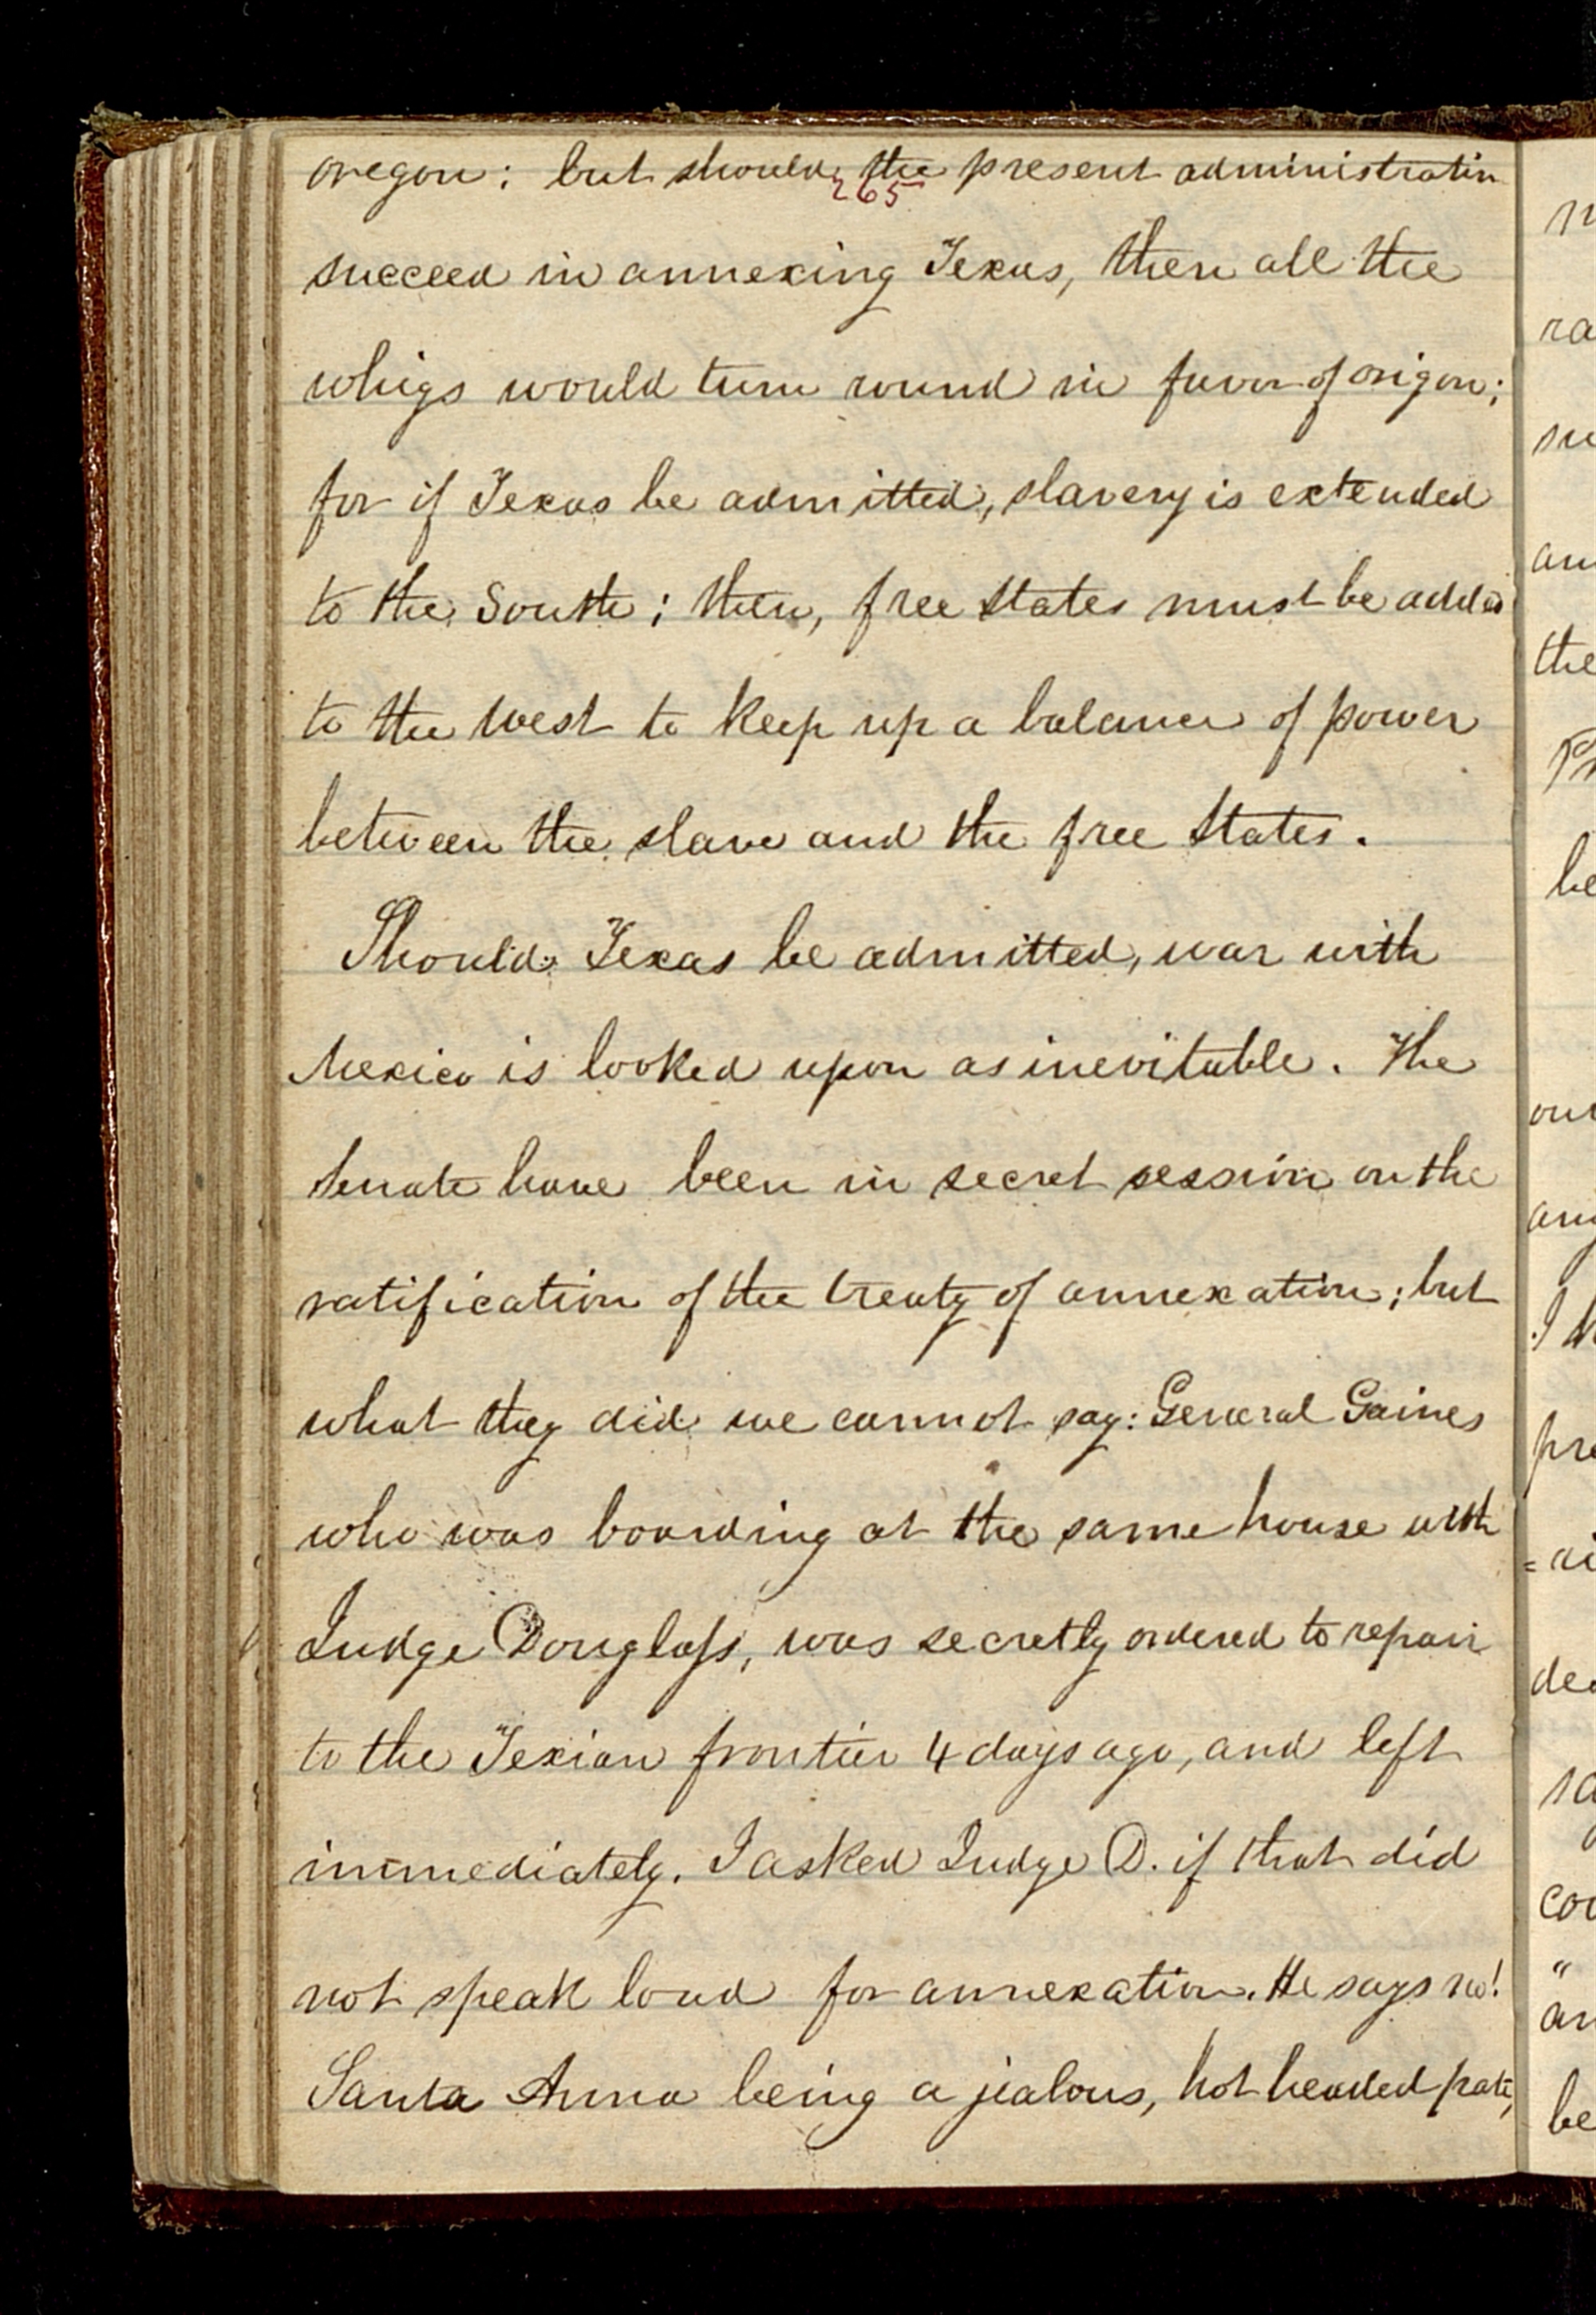 oregon: but should the present administratin
265
succeed in annexing Texas, then all the
whigs would turn round in favor of origon;
for if Texas be admitted, slavery is extended
to the South; then, free States must be added
to the West to keep up a balance of power
between the slave and the free States.
Should Texas be admitted, war with
Mexico is looked upon as inevitable. The
Senate have been in secret session on the
ratification of the treaty of annexation; but
what they did we cannot say: General Gaines
who was boarding at the same house with
Judge Douglass, was secretly ordered to repair
to the Texian frontier 4 days ago, and left
immediately. I asked Judge D. if that did
not speak loud for annexation. He says no!
Santa Anna being a jealous, hot headed pate,